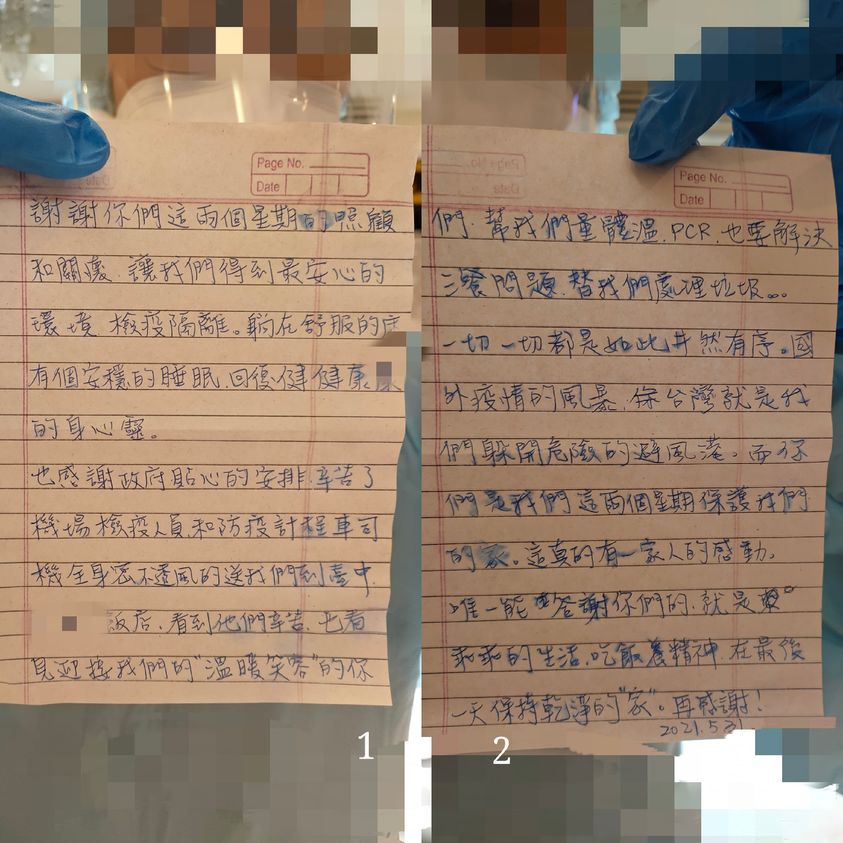 Page No.
Date
謝謝你們這兩個星期的照顧
和關懷.讓我們得到最安心的
環境 檢疫隔離。躺在舒服的床
有個安穩的睡眠.回復健健康
的身心靈。
也感謝政府貼心的安排.辛苦了
機場檢疫人員.和防疫計程車司
機全身密不透風的送我們到臺中
飯店.看到他們辛苦.也看
見迎接我們的"溫暖笑容"的你
1
Page No.
Date
們.幫我們量體溫.PCR.也要解決
三餐問題.替我們處理垃圾...
一切一切都是如此井然有序。國
外疫情的風暴.保台灣就是我
們躲開危險的避風港。而你
們是我們這兩個星期保護我們
的家。這真的有一家人的感動。
唯一能答謝你們的.就是
乖乖的生活.吃飯養精神 在最後
一天保持乾淨的"家"。再感謝!
2021.5.31
2